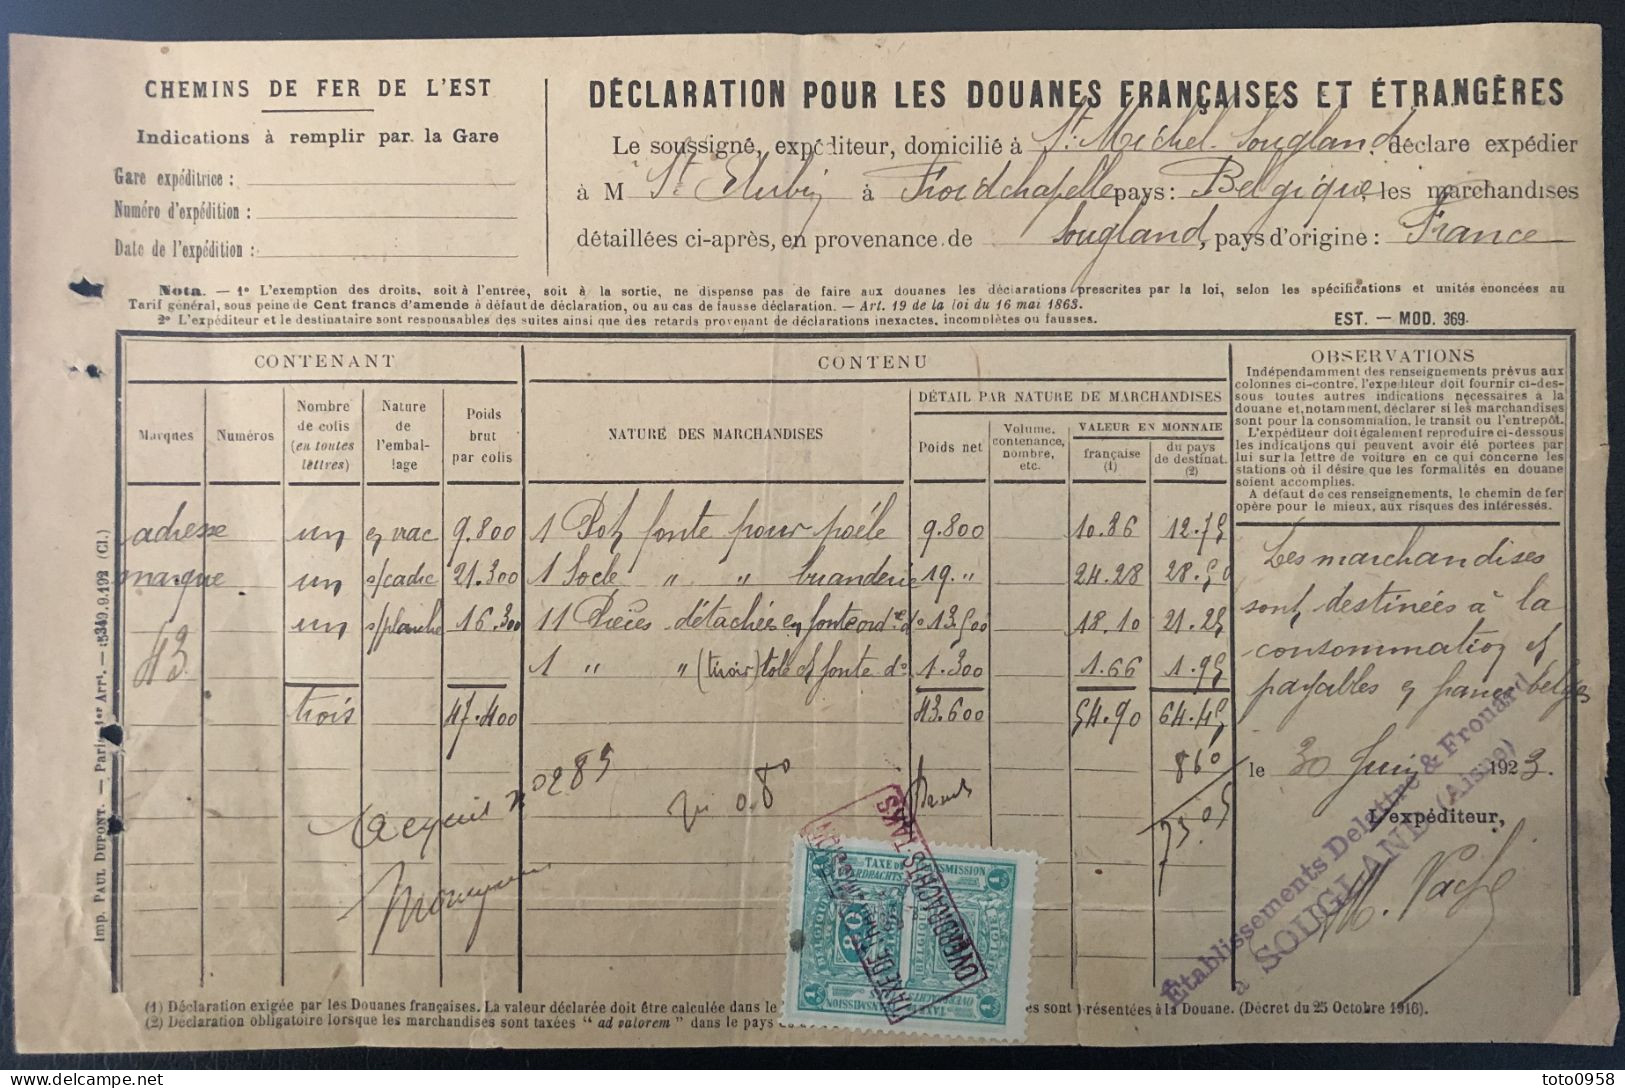 CHEMINS DE FER DE L'EST
Indications à remplir par la Gare
Gare expéditrice :
Numéro d'expédition :
Date de l'expédition :
DÉCLARATION POUR LES DOUANES FRANÇAISES ET ÉTRANGÈRES
Le soussigné, expéditeur, domicilié à St Michel Sougland, déclare expédier
à M St Elubin à Froidchapelle pays : Belgique, les marchandises
détaillées ci-après, en provenance de Sougland, pays d'origine : France
Nota. — 1º L'exemption des droits, soit à l'entrée, soit à la sortie, ne dispense pas de faire aux douanes les déclarations prescrites par la loi, selon les spécifications et unités énoncées au
Tarif général, sous peine de Cent francs d'amende à défaut de déclaration, ou au cas de fausse déclaration. — Art. 19 de la loi du 16 mai 1863.
2º L'expéditeur et le destinataire sont responsables des suites ainsi que des retards provenant de déclarations inexactes, incomplètes ou fausses.
EST. — MOD. 369.
CONTENANT
CONTENU
OBSERVATIONS
Marques
Numéros
Nombre
de colis
(en toutes
lettres)
Nature
de
l'embal-
lage
Poids
brut
par colis
NATURE DES MARCHANDISES
DÉTAIL PAR NATURE DE MARCHANDISES
Poids net
Volume,
contenance,
nombre,
etc.
VALEUR EN MONNAIE
française
(1)
du pays
de destinat.
(2)
Indépendamment des renseignements prévus aux
colonnes ci-contre, l'expéditeur doit fournir ci-des-
sous toutes autres indications nécessaires à la
douane et, notamment, déclarer si les marchandises
sont pour la consommation, le transit ou l'entrepôt.
L'expéditeur doit également reproduire ci-dessous
les indications qui peuvent avoir été portées par
lui sur la lettre de voiture en ce qui concerne les
stations où il désire que les formalités en douane
soient accomplies.
A défaut de ces renseignements, le chemin de fer
opère pour le mieux, aux risques des intéressés.
adresse un en vrac 9.800 1 Pot fonte pour poële 9.800 10.86 12.75
marque un s/cadre 21.300 1 Socle " " buanderie 19. " 24.28 28.50
43 un s/planche 16.300 11 Pièces détachées en fonte ordre do 13.500 18.10 21.25
1 " " (tiroir) tole et fonte do 1.300 1.66 1.95
trois 47.400 43.600 54.90 64.45
Les marchandises
sont destinées à la
consommation et
payables en francs belges
860
73.05
Acquit no 285
0.80
le 30 Juin 1923.
L'expéditeur,
Établissements Delattre & Frouard
à SOUGLAND (Aisne)
TAXE DE TRANSMISSION
OVERDRACHTSTAKS
BELGIQUE
BELGIË
80
1
(1) Déclaration exigée par les Douanes françaises. La valeur déclarée doit être calculée dans le
es sont présentées à la Douane. (Décret du 25 Octobre 1916).
(2) Déclaration obligatoire lorsque les marchandises sont taxées " ad valorem " dans le pays
Imp. PAUL DUPONT. — Paris, 1er Arrt. — 1534.9.9.192 (Cl.)
toto0958
delcampe.net